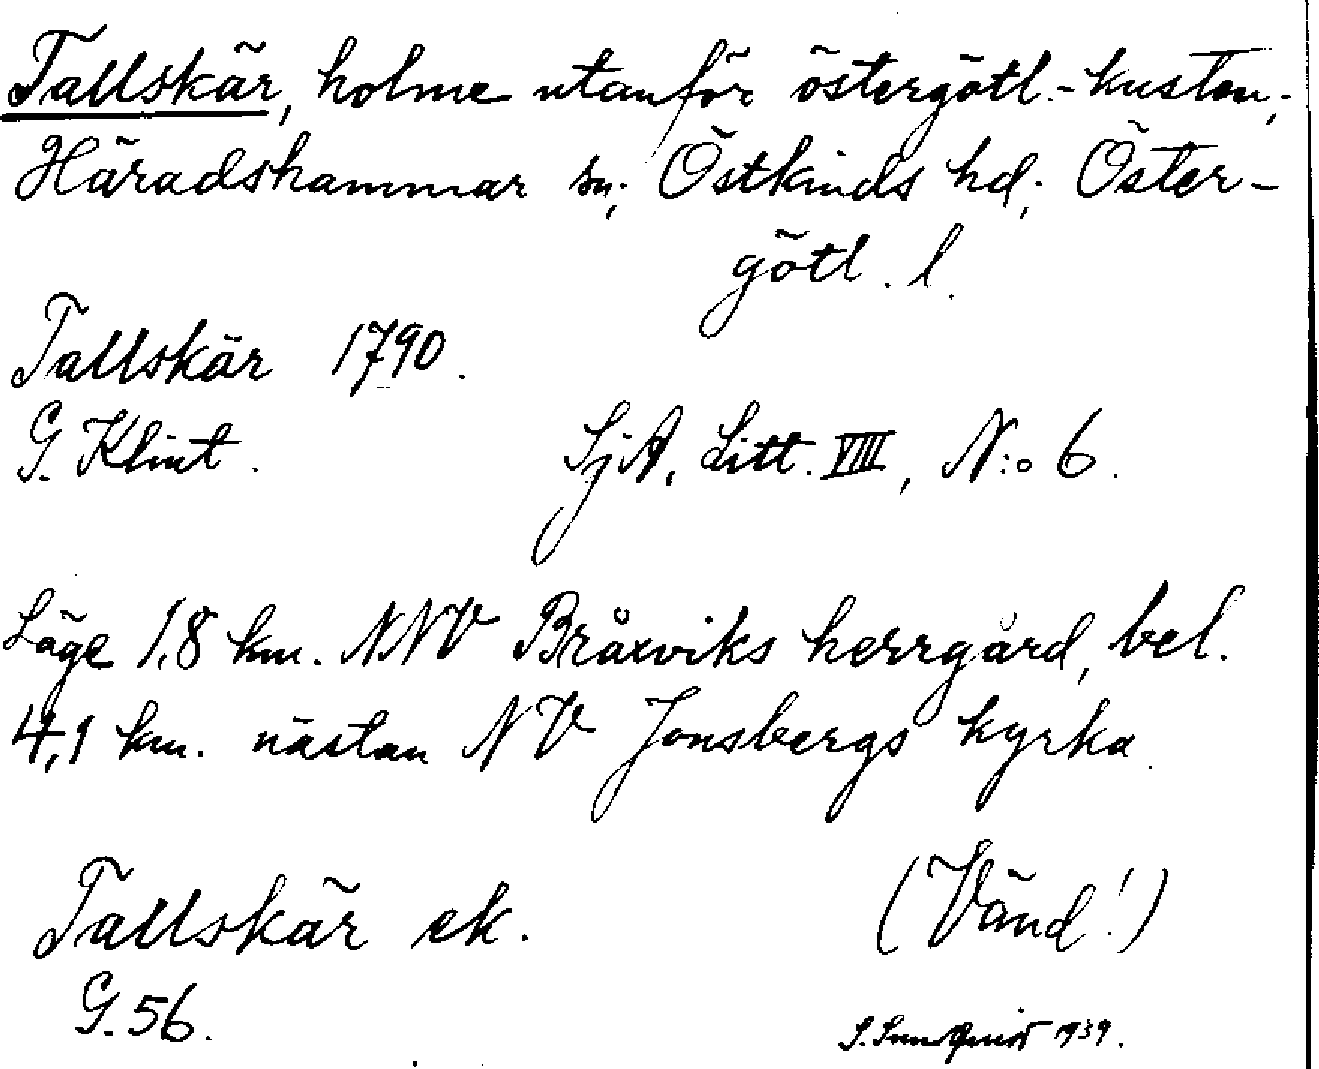 Tallskär, holme utanför östergötl.-kusten,
Häradshammar sn; Östkinds hd; Öster-
götl. l.
Tallskär 1790.
G. Klint. SjA, Litt. VIII, N:o 6.
Läge 1,8 km. NNV Bråxviks herrgård, bel.
4,1 km. nästan NV Jonsbergs kyrka.
Tallskär ek. (Vänd!)
G. 56.
S. Sundquist 1939.